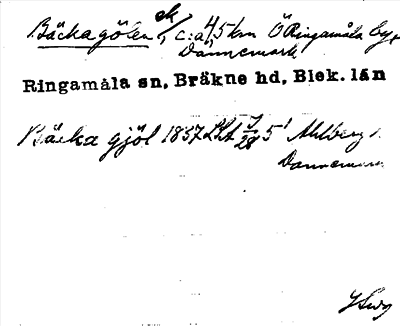 Bäckagölen ek c:a 4,5 km Ö Ringamåla by,
Dannemark
Ringamåla sn, Bräkne hd, Blek. län
Bäcka gjöl 1837 LSA 5 Ahlberg
Dannemark